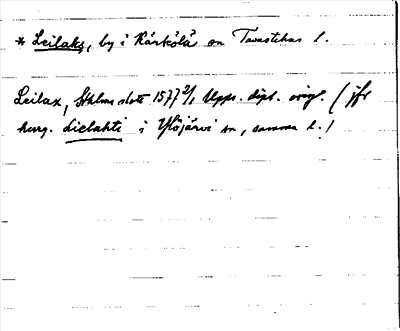 * Leilaks, by i Kärkölä sn Tavastehus l.
Leilax, Sthlms slott 1577 2/1 Upps. dipl. orig. (jfr
hung. Lielahti i Ylöjärvi sn, samma l.)